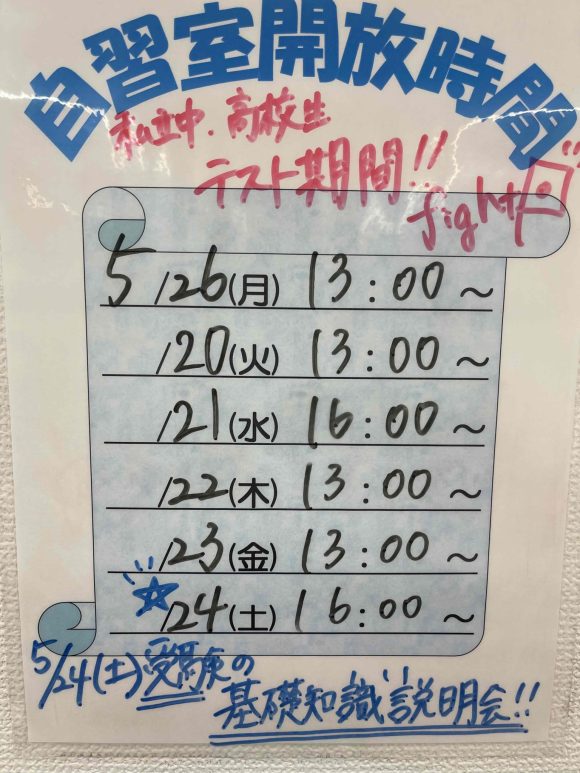 自習室開放時間
私立中、高校生
テスト期間!!
fight!
5/26(月) 13:00~
/20(火) 13:00~
/21(水) 16:00~
/22(木) 13:00~
/23(金) 13:00~
/24(土) 16:00~
5/24(土)受験の
基礎知識説明会!!